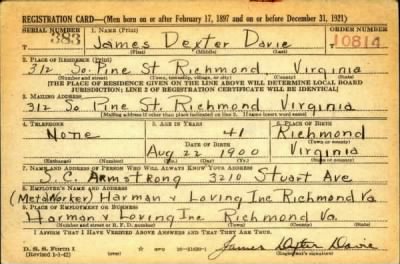 REGISTRATION CARD—(Men born on or after February 17, 1897 and on or before December 31, 1921)
SERIAL NUMBER 1. NAME (Print) ORDER NUMBER
383 James Dexter Davie 10814
(First) (Middle) (Last)
2. PLACE OF RESIDENCE (Print)
312 So. Pine St Richmond Virginia
(Number and street) (Town, township, village, or city) (County) (State)
[THE PLACE OF RESIDENCE GIVEN ON THE LINE ABOVE WILL DETERMINE LOCAL BOARD
JURISDICTION; LINE 2 OF REGISTRATION CERTIFICATE WILL BE IDENTICAL]
3. MAILING ADDRESS
312 So Pine St. Richmond Virginia
[Mailing address if other than place indicated on line 2. If same insert word same]
4. TELEPHONE 5. AGE IN YEARS 6. PLACE OF BIRTH
None 41 Richmond
DATE OF BIRTH (Town or county)
Aug 22 1900 Virginia
(Exchange) (Number) (Mo.) (Day) (Yr.) (State or country)
7. NAME AND ADDRESS OF PERSON WHO WILL ALWAYS KNOW YOUR ADDRESS
J. C. Armstrong 3210 Stuart Ave
8. EMPLOYER'S NAME AND ADDRESS
(Metal Worker) Harman v Loving Inc Richmond Va
9. PLACE OF EMPLOYMENT OR BUSINESS
Harman v Loving Inc Richmond Va
(Number and street or R. F. D. number) (Town) (County) (State)
I AFFIRM THAT I HAVE VERIFIED ABOVE ANSWERS AND THAT THEY ARE TRUE.
D. S. S. Form 1
(Revised 1-1-42) (over) James Dexter Davie